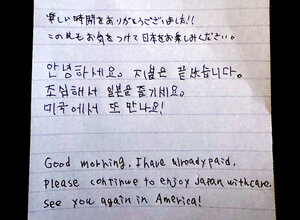 楽しい時間をありがとうございました!!
この先もお気をつけて日本をお楽しみください。
안녕하세요。 지불은 끝났습니다。
조심해서 일본을 즐기세요。
미국에서 또 만나요!
Good morning, I have already paid,
please continue to enjoy Japan with care,
see you again in America!